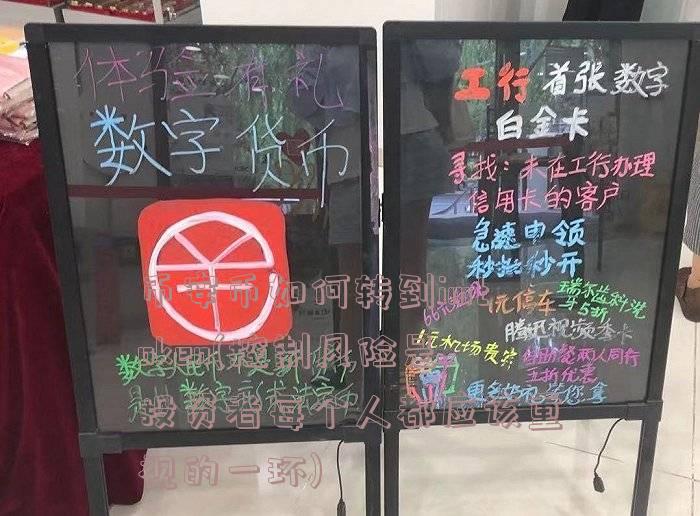 体验有礼
数字货币
数字人民币
工行 首张数字
白金卡
寻找：未在工行办理
信用卡的客户
急速申领
秒批秒开
1元停车
瑞尔齿科洗
牙5折
腾讯视频季卡
1元机场贵宾
两人同行
五折优惠
更多好礼等您拿
币安币如何转到im
控制风险是
投资者每个人都应该重
视的一环)